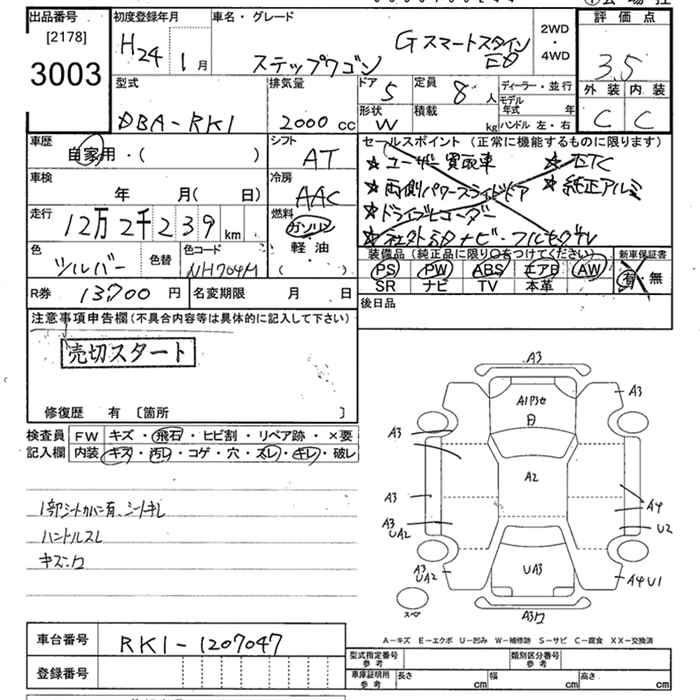 出品番号 [2178] 3003
初度登録年月 H24年 1月
車名・グレード ステップワゴン Gスマートスタイン E8
2WD・4WD
評価点 3.5
外装 C 内装 C
型式 DBA-RK1
排気量 2000 CC
ドア 5
形状 W
定員 8 人
積載 kg
ディーラー・並行
モデル年式 年
ハンドル 左・右
車歴 自家用・( )
シフト AT
車検 年 月( 日)
冷房 AAC
走行 12万2千239 km
燃料 ガソリン 軽・油 ( )
色 シルバー 色替
色コード NH704M
R券 13700 円 名変期限 月 日
セールスポイント (正常に機能するものに限ります)
★ユーザー買取車 ★ETC
★両側パワースライドドア ★純正アルミ
★ドライブレコーダー
★社外SDナビ・フルセグTV
装備品(純正品に限り○をつけてください) 新車保証書
PS PW ABS エアB AW 有・無
SR ナビ TV 本革
後日品
注意事項申告欄(不具合内容等は具体的に記入して下さい)
売切スタート
修復歴 有 〔箇所 〕
検査員記入欄
FW キズ・飛石・ヒビ割・リペア跡・×要
内装 キズ・汚レ・コゲ・穴・スレ・キレ・破レ
1部シートカバー有、シートキレ
ハンドルスレ
キズ、凹
A3
A1P3セ
A3
A3
A2
A3
A4
A3
UA2
U2
A3
UA2
UA3
A4U1
スペア
A3凹
A-キズ E-エクボ U-凹み W-補修跡 S-サビ C-腐食 XX-交換済
車台番号 RK1-1207047
登録番号
型式指定番号 参考 類別区分番号 参考
車庫証明用 参考 長さ cm 幅 cm 高さ cm